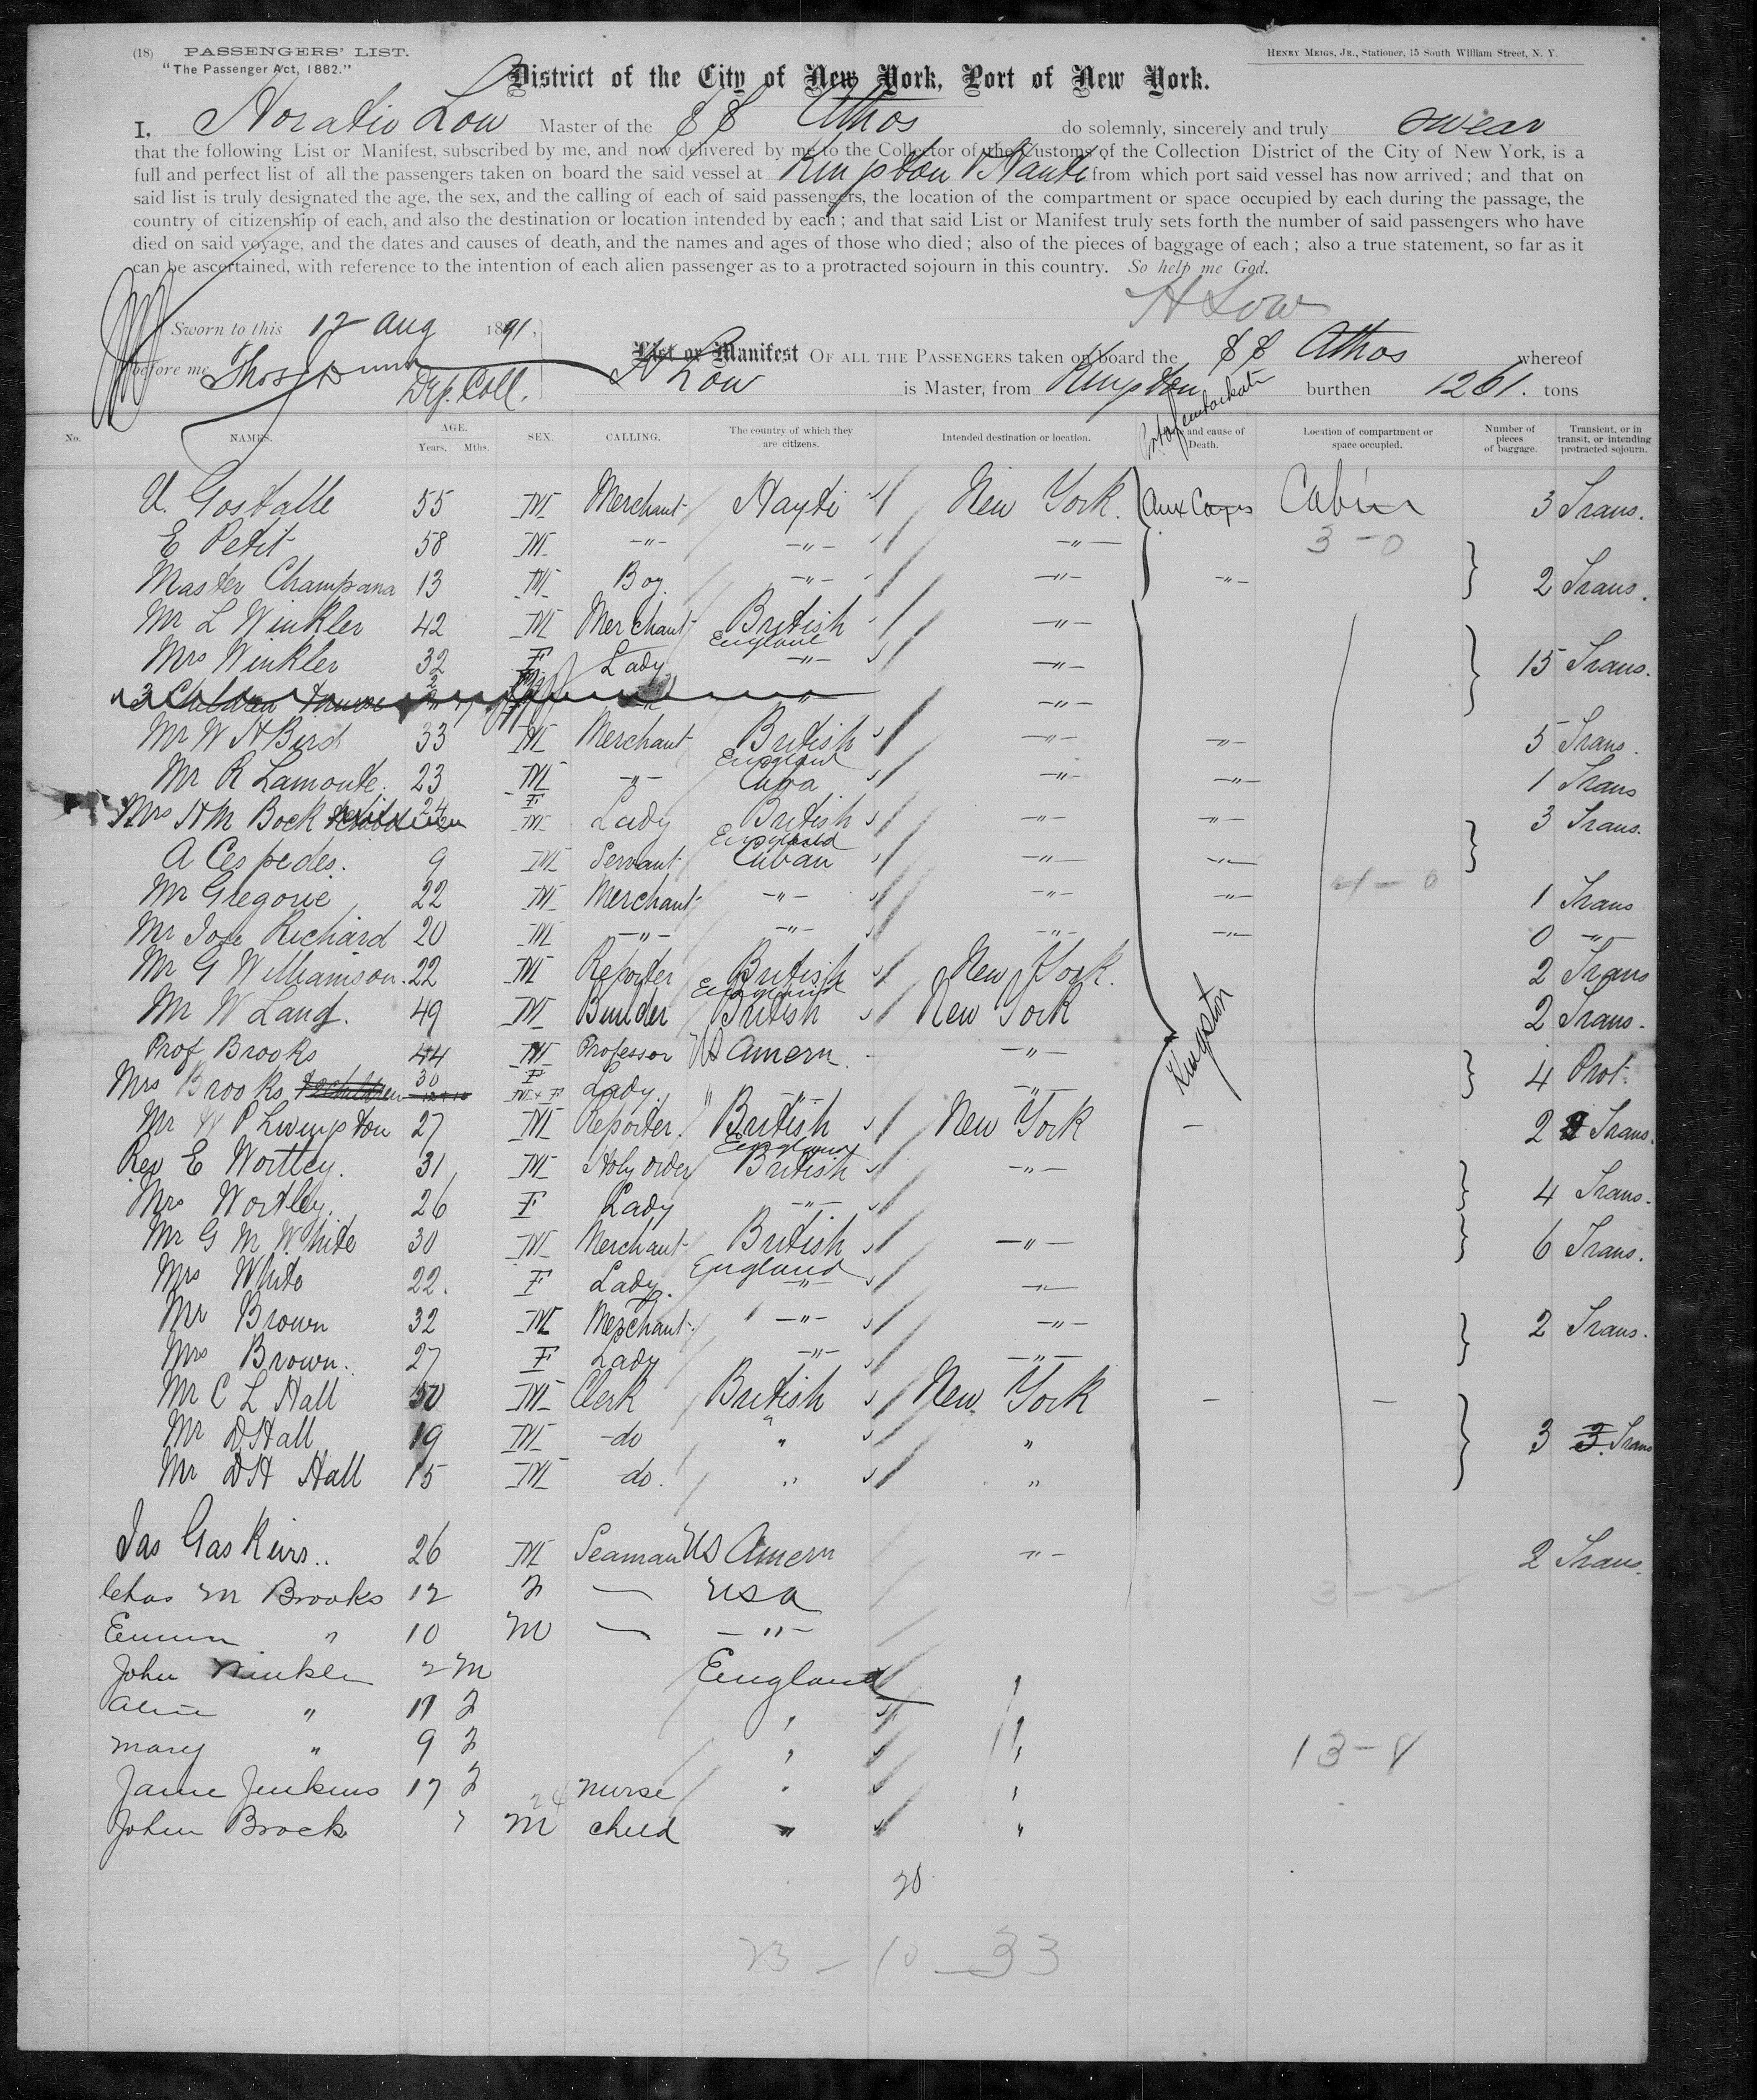 (18) PASSENGERS' LIST.
"The Passenger Act, 1882."
HENRY MEIGS, JR., Stationer, 15 South William Street, N. Y.
District of the City of New York, Port of New York.
I, Horatio Low Master of the SS Athos do solemnly, sincerely and truly swear
that the following List or Manifest, subscribed by me, and now delivered by me to the Collector of the Customs of the Collection District of the City of New York, is a
full and perfect list of all the passengers taken on board the said vessel at Kingston & Hayti from which port said vessel has now arrived; and that on
said list is truly designated the age, the sex, and the calling of each of said passengers, the location of the compartment or space occupied by each during the passage, the
country of citizenship of each, and also the destination or location intended by each; and that said List or Manifest truly sets forth the number of said passengers who have
died on said voyage, and the dates and causes of death, and the names and ages of those who died; also of the pieces of baggage of each; also a true statement, so far as it
can be ascertained, with reference to the intention of each alien passenger as to a protracted sojourn in this country. So help me God.
H Low
Sworn to this 17 Aug 1891,
before me Thos Dunn
Dep. Coll.
List or Manifest OF ALL THE PASSENGERS taken on board the SS Athos whereof
H Low is Master, from Kingston burthen 1261. tons
No. NAMES. AGE. Years. Mths. SEX. CALLING. The country of which they are citizens. Intended destination or location. Port of embarkati and cause of Death. Location of compartment or space occupied. Number of pieces of baggage. Transient, or in transit, or intending protracted sojourn.
U. Gostalle 55 M Merchant Hayti New York. Aux Cayes Cabin 3 Trans.
E Petit 58 M -"- -"- -"- 3-0
Master Champana 13 M Boy -"- -"- -"- 2 Trans.
Mr L Winkler 42 M Merchant British England -"-
Mrs Winkler 32 F Lady -"- -"- 15 Trans.
3 Children -"-
Mr W H Bird 33 M Merchant British England -"- -"- 5 Trans.
Mr R Lamonte. 23 M -"- Cuba -"- -"- 1 Trans
Mrs H M Bock 24 F M Lady British England -"- -"- 3 Trans.
A Cespedes. 9 M Servant Cuban -"- -"-
Mr Gregorie 22 M Merchant -"- -"- -"- 1 Trans
Mr Jose Richard 20 M -"- -"- -"- -"- 0 -"-
Mr G Williamson. 22 M Reporter British England New York. 2 Trans
Mr W Lang. 49 M Builder British New York Kingston 2 Trans.
Prof Brooks 44 M Professor US Amern. -"- 4 Prot.
Mrs Brooks 30 F M+F Lady. " -"- -"-
Mr W P Livingston 27 M Reporter. British England New York - 2 Trans.
Rev E Wortley. 31 M Holy order British -"-
Mrs Wortley. 26 F Lady -"- 4 Trans.
Mr G M White 30 M Merchant British England -"- 6 Trans.
Mrs White 22. F Lady. -"- -"-
Mr Brown 32 M Merchant. " -"- -"- 2 Trans.
Mrs Brown. 27 F Lady -"- -"-
Mr C L Hall 50 M Clerk British New York - -
Mr D Hall 19 M -do " " 3 3. Trans
Mr D H Hall 15 M -do. " "
Jas Gaskins.. 26 M Seaman US Amern -"- 2 Trans.
Chas M Brooks 12 F — USA
Emma " 10 M — -"-
John Winkler 2 M England "
Alice " 11 F " "
Mary " 9 F " " 13-8
Jane Jenkins 17 F nurse " "
John Brock 7 M child " "
28
23 - 10 - 33